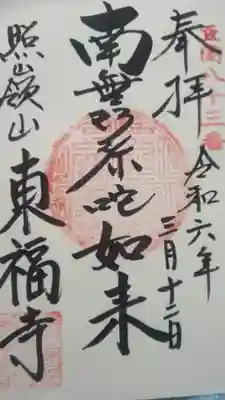 西国八十三番
奉拝
令和六年
三月十二日
南無弥陀如来
照嶺山
東福寺